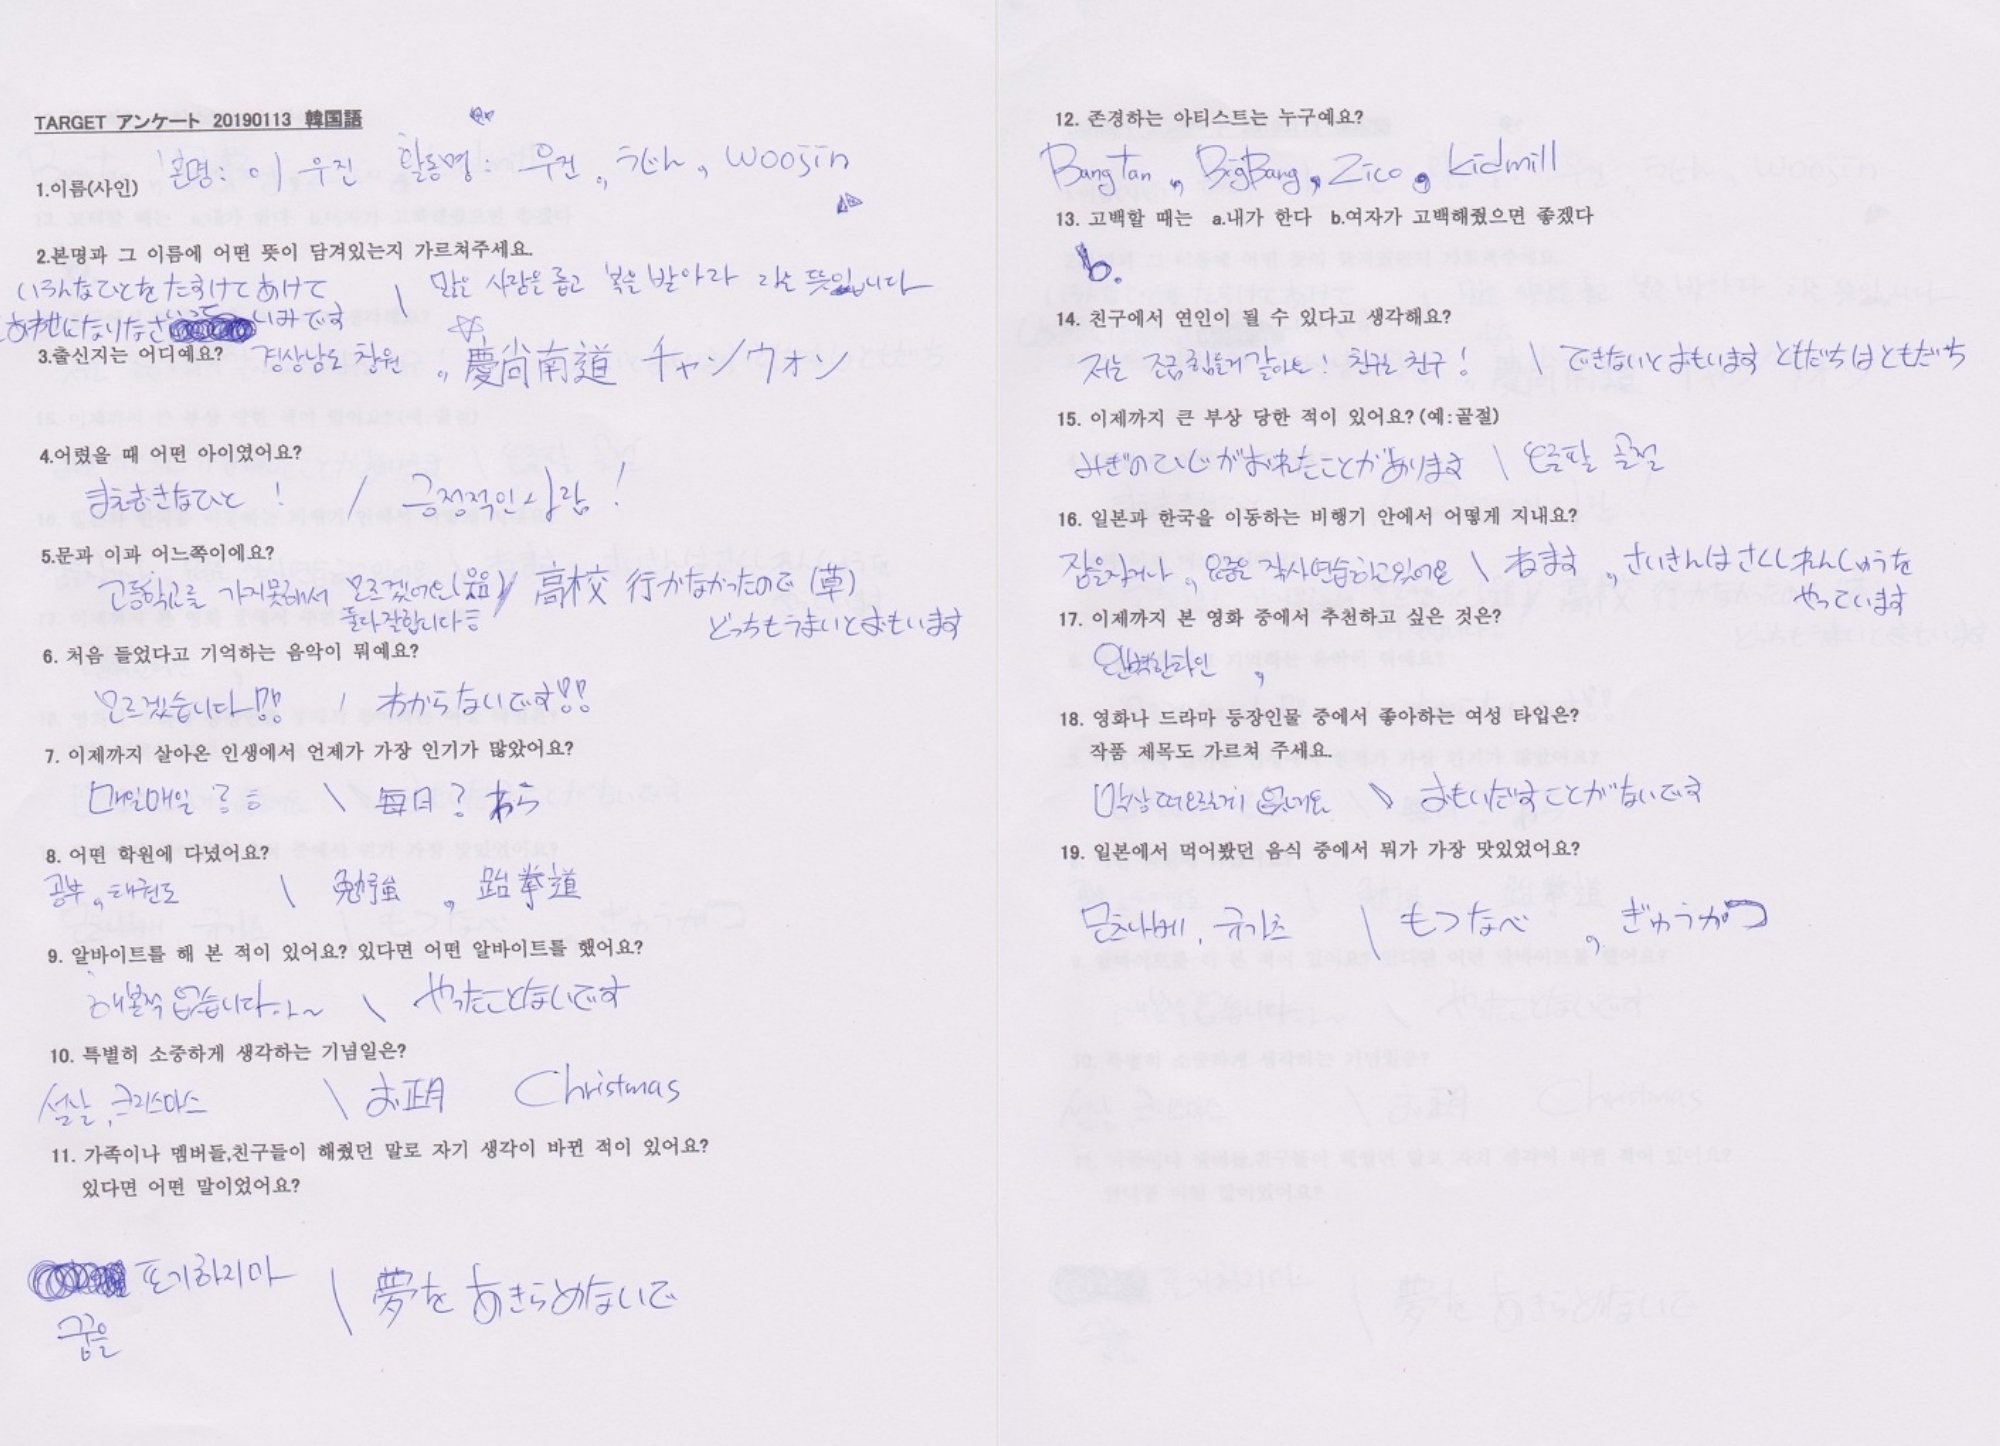 TARGET アンケート 20190113 韓国語
본명: 이우진 활동명: 우진, うじん, WOOJin
1.이름(사인)
2.본명과 그 이름에 어떤 뜻이 담겨있는지 가르쳐주세요.
いろんなひとをたすけてあげて \ 많은 사람을 돕고 복을 받아라 라는 뜻입니다
しあわせになりなさい いみです
3.출신지는 어디예요? 경상남도 창원, 慶尚南道 チャンウォン
4.어렸을 때 어떤 아이였어요?
まえむきなひと! / 긍정적인 사람!
5.문과 이과 어느쪽이에요?
고등학교를 가지못해서 모르겠어요(웃음) / 高校 行かなかったので(草)
둘다잘합니다ㅎ どっちもうまいとおもいます
6. 처음 들었다고 기억하는 음악이 뭐예요?
모르겠습니다!! / わからないです!!
7. 이제까지 살아온 인생에서 언제가 가장 인기가 많았어요?
매일매일?ㅎ \ 毎日?わら
8. 어떤 학원에 다녔어요?
공부, 태권도 \ 勉強, 跆拳道
9. 알바이트를 해 본 적이 있어요? 있다면 어떤 알바이트를 했어요?
해본적 없습니다..ㅏ~ \ やったことないです
10. 특별히 소중하게 생각하는 기념일은?
설날, 크리스마스 \ お正月 Christmas
11. 가족이나 멤버들,친구들이 해줬던 말로 자기 생각이 바뀐 적이 있어요?
있다면 어떤 말이었어요?
포기하지마 \ 夢をあきらめないで
꿈을
12. 존경하는 아티스트는 누구예요?
BangTan, BigBang, Zico, kidmill
13. 고백할 때는 a.내가 한다 b.여자가 고백해줬으면 좋겠다
b.
14. 친구에서 연인이 될 수 있다고 생각해요?
저는 조금 힘들거 같아요! 친구는 친구! \ できないとおもいます ともだちはともだち
15. 이제까지 큰 부상 당한 적이 있어요?(예:골절)
みぎのひじがおれたことがあります \ 오른팔 골절
16. 일본과 한국을 이동하는 비행기 안에서 어떻게 지내요?
잠을자거나, 요즘은 작사연습하고있어요 \ ねます, さいきんはさくしれんしゅうを
やっています
17. 이제까지 본 영화 중에서 추천하고 싶은 것은?
완벽한타인,
18. 영화나 드라마 등장인물 중에서 좋아하는 여성 타입은?
작품 제목도 가르쳐 주세요.
막상 떠오르는게 없네요 \ おもいだすことがないです
19. 일본에서 먹어봤던 음식 중에서 뭐가 가장 맛있었어요?
모츠나베, 규가츠 \ もつなべ, ぎゅうかつ